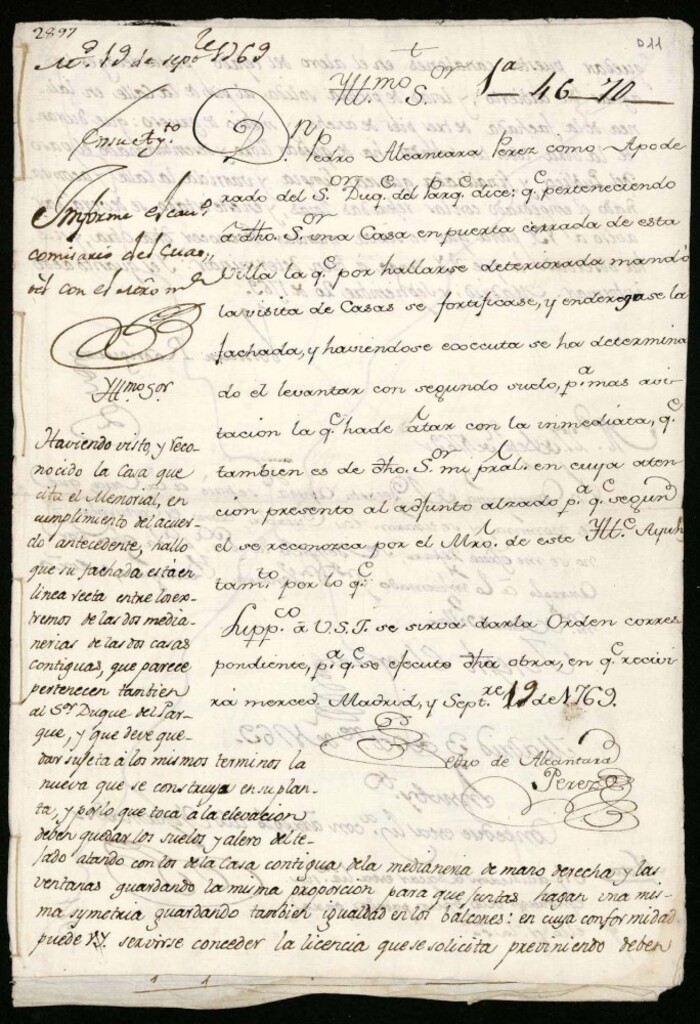 2897
011
M.d 19 de sepre 1769
Yllmo Sor
1a 46 - 70
En su Ayto
Informe el cavo.
comisario del Quar-
tel con el Mro mr
Dn Pedro Alcantara Perez como Apode
rado del Sor Duq.e del Parq.e dice: q.e perteneciendo
à dho. Sor una Casa en puerta cerrada de esta
Villa la q.e por hallarse deteriorada mandó
la visita de Casas se fortificase, y enderezase la
fachada, y haviendose execcuta se ha determina
do el levantar con segundo suelo, p.a mas avi
tacion la q.e hade atar con la inmediata, q.e
tambien es de dho. Sor mi pral. en cuya aten
cion presento al adjunto alzado p.a q.e segund
el se reconozca por el Mro. de este Yll.e Ayun
tamto por lo q.e
Supp.co à V.S.I. se sirva darla Orden corres
pondiente, p.a q.e se efecuto dha obra, en q.e recivi
rà merced. Madrid, y Sept.re 19 de 1769.
Pedro de Alcantara
Perez
Yllmo Sor
Haviendo visto, y reco-
nocido la Casa que
cita el Memorial, en
cumplimiento del acuer-
do antecedente, hallo
que su fachada està en
linea recta entre los ex-
tremos de las dos media-
nerias de las dos casas
contiguas, que parece
pertenecen tambien
al Sor Duque del Par-
que, y que deve que-
dar sujeta à los mismos terminos la
nueva que se construya en su plan-
ta, y por lo que toca à la elevacion
deben quedar los suelos y alero del te-
jado atando con los de la Casa contigua de la medianeria de mano derecha y las
ventanas guardando la misma proporcion para que juntas hagan una mis-
ma symetria guardando tambien igualdad en los balcones: en cuya conformidad
puede V.Y. servirse conceder la licencia que se solicita previniendo deben